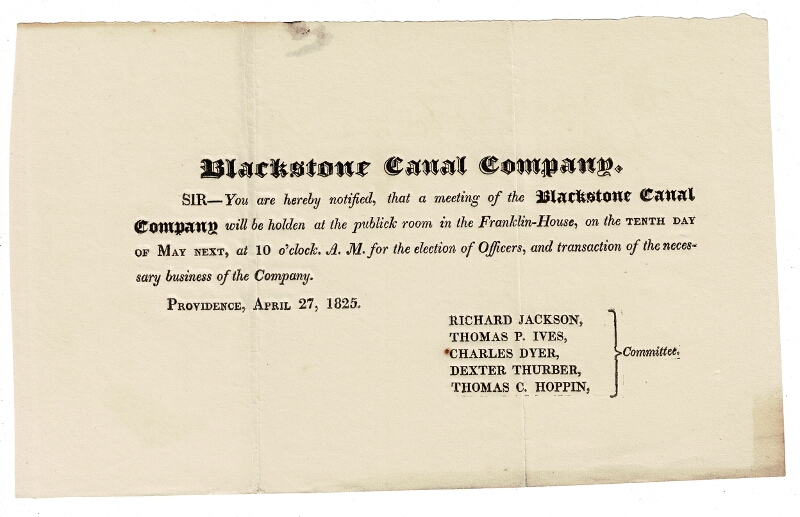 Blackstone Canal Company.
SIR—You are hereby notified, that a meeting of the Blackstone Canal
Company will be holden at the publick room in the Franklin-House, on the TENTH DAY
OF MAY NEXT, at 10 o'clock. A. M. for the election of Officers, and transaction of the neces-
sary business of the Company.
PROVIDENCE, APRIL 27, 1825.
RICHARD JACKSON,
THOMAS P. IVES,
CHARLES DYER,
DEXTER THURBER,
THOMAS C. HOPPIN,
Committee.